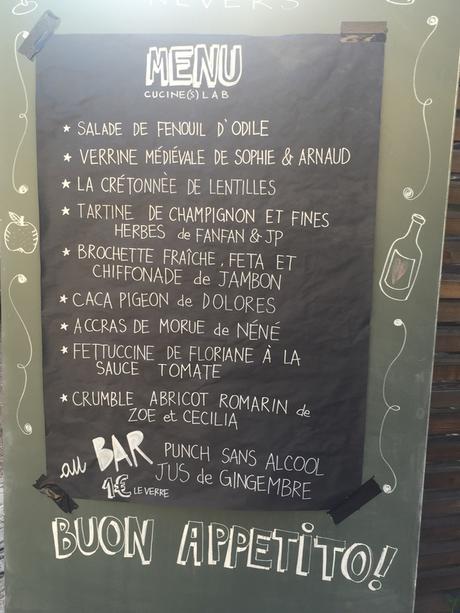 NEVERS
MENU
CUCINE(S) LAB
★ SALADE DE FENOUIL D'ODILE
★ VERRINE MÉDIÉVALE DE SOPHIE & ARNAUD
★ LA CRÉTONNÉE DE LENTILLES
★ TARTINE DE CHAMPIGNON ET FINES
HERBES de FANFAN & JP
★ BROCHETTE FRAÎCHE, FETA ET
CHIFFONADE de JAMBON
★ CACA PIGEON de DOLORES
★ ACCRAS DE MORUE de NÉNÉ
★ FETTUCCINE DE FLORIANE À LA
SAUCE TOMATE
★ CRUMBLE ABRICOT ROMARIN de
ZOE et CECILIA
au BAR PUNCH SANS ALCOOL
1€ LE VERRE JUS de GINGEMBRE
BUON APPETITO!